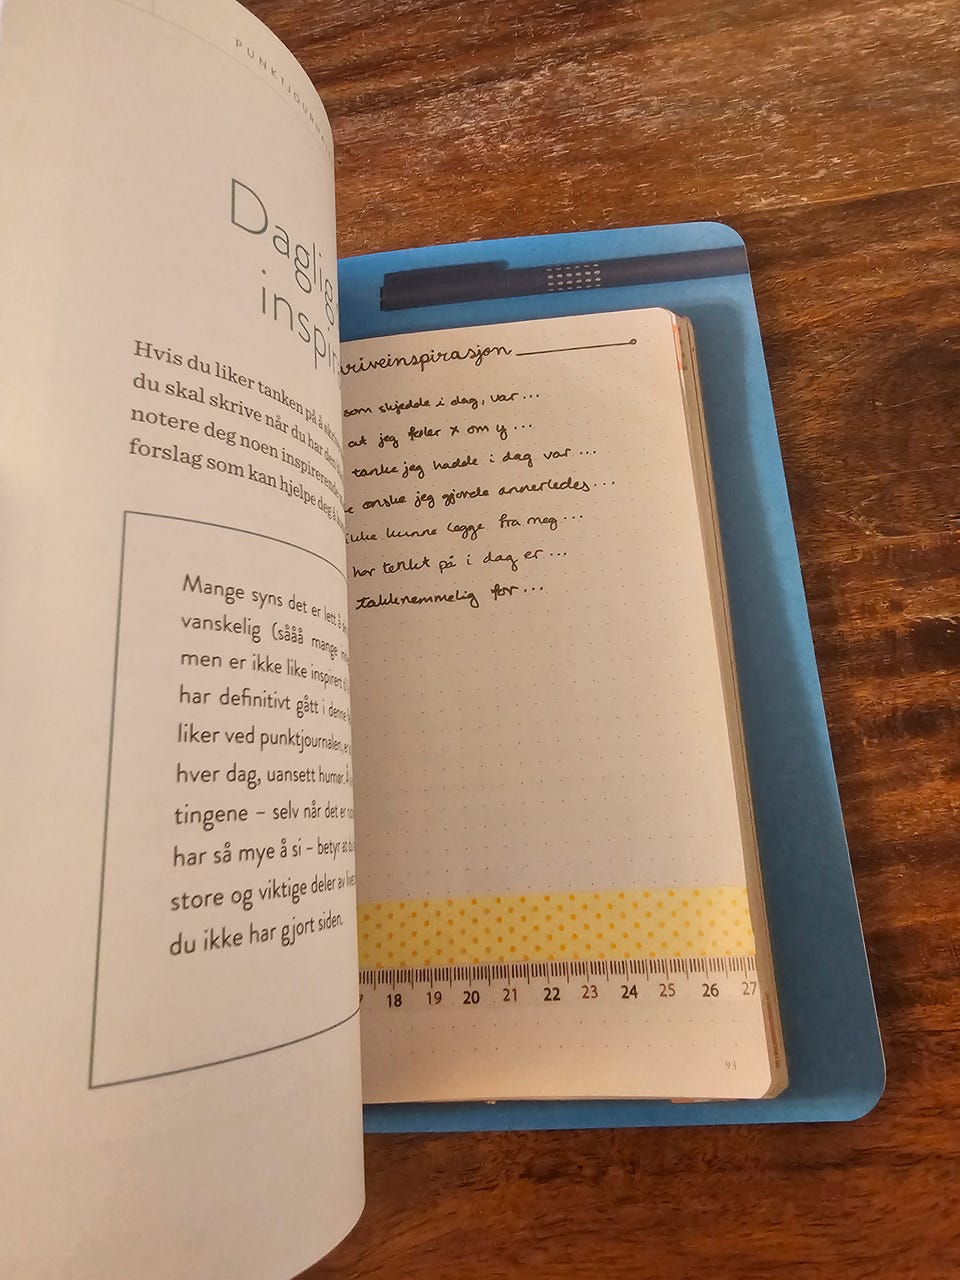 PUNKTJOURNAL
Daglig
inspir
Hvis du liker tanken på å skrive
du skal skrive når du har den
notere deg noen inspirerende
forslag som kan hjelpe deg å
Mange syns det er lett å
vanskelig (sååå mange
men er ikke like inspirert
har definitivt gått i denne
liker ved punktjournalen, er
hver dag, uansett humør. Å
tingene – selv når det er
har så mye å si – betyr at du
store og viktige deler av livet
du ikke har gjort siden.
riveinspirasjon
som skjedde i dag, var...
at jeg føler x om y...
tanke jeg hadde i dag var...
ønske jeg gjorde annerledes...
ikke kunne legge fra meg...
har tenkt på i dag er...
takknemmelig for...
18 19 20 21 22 23 24 25 26 27
93